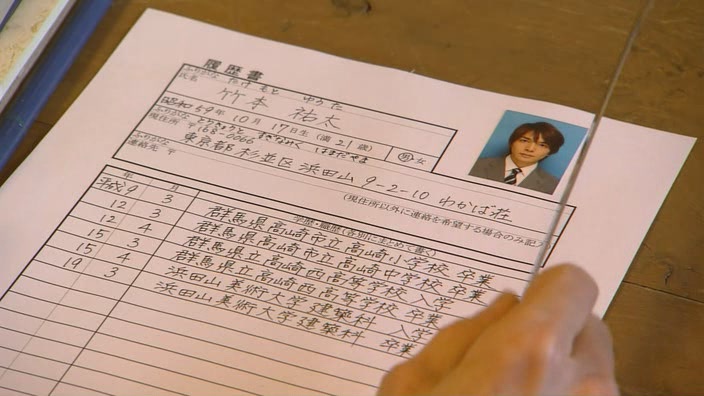 履歴書
ふりがな たけもと ゆうた
氏名 竹本 祐太
昭和59年10月17日生(満21歳) 男・女
ふりがな とうきょうと すぎなみく はまだやま
現住所 〒168-0066
東京都杉並区浜田山9-2-10 わかば荘
ふりがな
連絡先 〒 (現住所以外に連絡を希望する場合のみ記入)
年 月 学歴・職歴(各別にまとめて書く)
平成9 3 群馬県高崎市立高崎小学校 卒業
12 3 群馬県高崎市立高崎中学校 卒業
12 4 群馬県立高崎西高等学校 入学
15 3 群馬県立高崎西高等学校 卒業
15 4 浜田山美術大学建築科 入学
19 3 浜田山美術大学建築科 卒業